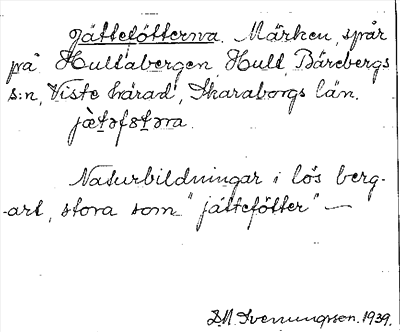 Jättefötterna. Märken, spår
på Hultabergen, Hult, Bärebergs
s:n, Viste härad, Skaraborgs län.
jæ̀t̯əfst̯əra.
Naturbildningar i lös berg-
-art, stora som "jättefötter" —
D.N. Svenningsson. 1939.